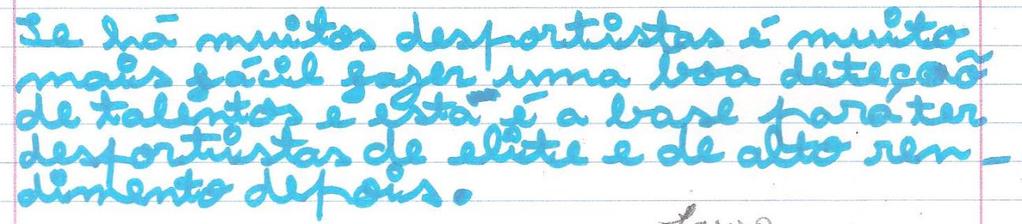 Se há muitos desportistas é muito
mais fácil fazer uma boa deteção
de talentos e esta é a base para ter
desportistas de elite e de alto ren-
dimento depois.